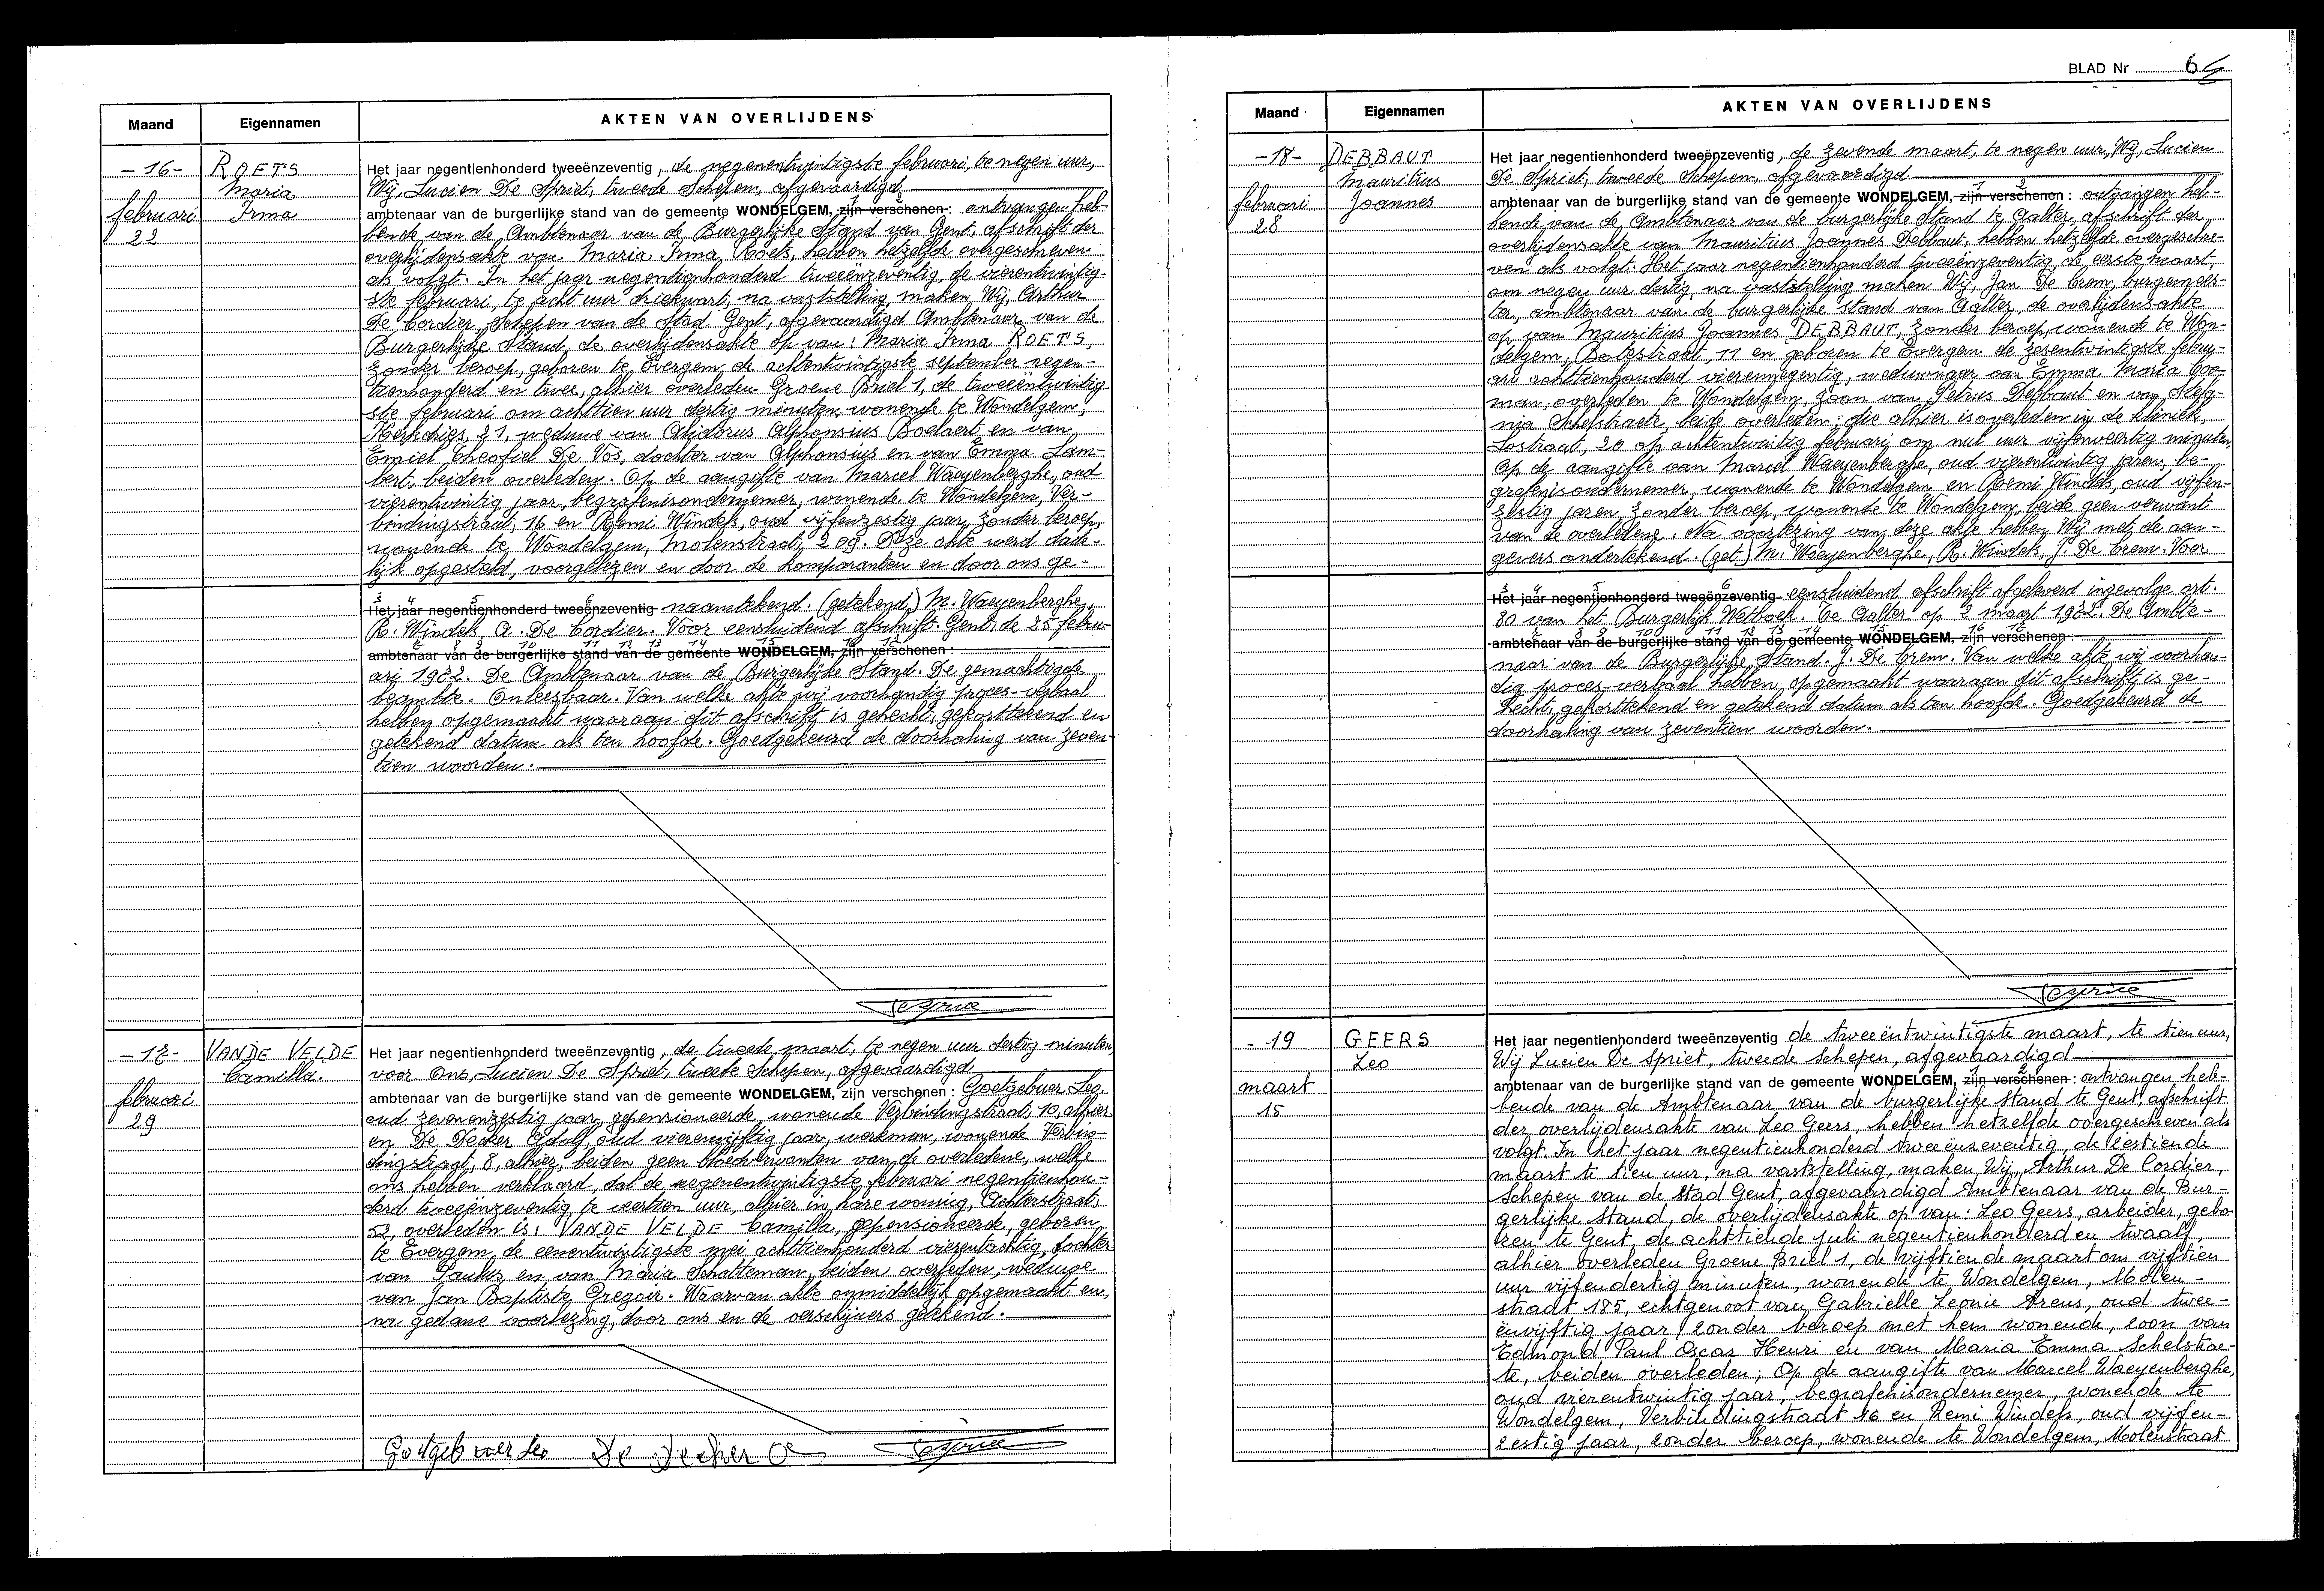 Maand Eigennamen AKTEN VAN OVERLIJDENS
-16- ROETS
Maria
februari Irma
22
Het jaar negentienhonderd tweeënzeventig, de negenentwintigste februari, te negen uur,
Wij, Lucien De Spriet, tweede Schepen, afgevaardigd
1 2
ambtenaar van de burgerlijke stand van de gemeente WONDELGEM, zijn verschenen: ontvangen heb-
bende van de Ambtenaar van de Burgerlijke Stand van Gent, afschrift der
overlijdensakte van Maria Irma Roets, hebben hetzelfde overgeschreven
als volgt. In het jaar negentienhonderd tweeënzeventig, de vierentwintig-
ste februari, te acht uur driekwart, na vaststelling, maken, Wij, Arthur
De Cordier, Schepen van de Stad Gent, afgevaardigd Ambtenaar van de
Burgerlijke Stand, de overlijdensakte op van: Maria Irma ROETS,
zonder beroep, geboren te Evergem, de achtentwintigste september negen-
tienhonderd en twee, alhier overleden Groene Briel 1, de tweeëntwintig-
ste februari om achttien uur dertig minuten, wonende te Wondelgem,
Kerkdries, 21, weduwe van Alidorus Alphonsius Boelaert en van
Emiel Theofiel De Vos, dochter van Alphonsius en van Emma Lam-
bert, beiden overleden. Op de aangifte van Marcel Waeyenberghe, oud
vierentwintig jaar, begrafenisondernemer, wonende te Wondelgem, Ver-
bindingstraat, 16 en Remi Windels, oud vijfenzestig jaar, zonder beroep,
wonende te Wondelgem, Molenstraat, 209. Deze akte werd dade-
lijk opgesteld, voorgelezen en door de komparanten en door ons ge-
3 4 5 6
Het jaar negentienhonderd tweeënzeventig naamtekend. (getekend) M. Waeyenberghe,
R. Windels, A. De Cordier. Voor eensluidend afschrift. Gent, de 25 febru-
7 8 9 10 11 12 13 14 15 16 17
ambtenaar van de burgerlijke stand van de gemeente WONDELGEM, zijn verschenen:
ari 1972. De Ambtenaar van de Burgerlijke Stand. De gemachtigde
beambte. Onleesbaar. Van welke akte wij voorhandig proces-verbaal
hebben opgemaakt waaraan dit afschrift is gehecht, gekorttekend en
getekend datum als ten hoofde. Goedgekeurd de doorhaling van zeven-
tien woorden.
-17- VANDE VELDE
Camilla.
februari
29
Het jaar negentienhonderd tweeënzeventig, de tweede maart, te negen uur dertig minuten,
voor Ons, Lucien De Spriet, tweede Schepen, afgevaardigd
ambtenaar van de burgerlijke stand van de gemeente WONDELGEM, zijn verschenen: Goetgebuer Leo,
oud zevenenzestig jaar, gepensioneerde, wonende Verbindingstraat, 10, alhier
en De Decker Adolf, oud vierenvijftig jaar, werkman, wonende Verbin-
dingstraat, 8, alhier, beiden geen bloedverwanten van de overledene, welke
ons hebben verklaard, dat de negenentwintigste februari negentienhon-
derd tweeënzeventig te veertien uur, alhier in hare woning, Achterstraat,
52, overleden is: VANDE VELDE Camilla, gepensioneerde, geboren
te Evergem, de eenentwintigste mei achttienhonderd vierentachtig, dochter
van Paulus en van Maria Schatteman, beiden overleden, weduwe
van Jan Baptiste Gregoir. Waarvan akte onmiddellijk opgemaakt en,
na gedane voorlezing, door ons en de verschijners getekend.
Goetgebuer Leo De Decker A
BLAD Nr 6
Maand Eigennamen AKTEN VAN OVERLIJDENS
-18- DEBBAUT
Mauritius
februari Joannes
28
Het jaar negentienhonderd tweeënzeventig, de zevende maart, te negen uur, Wij, Lucien
De Spriet, tweede Schepen, afgevaardigd
1 2
ambtenaar van de burgerlijke stand van de gemeente WONDELGEM, zijn verschenen: ontvangen heb-
bende van de Ambtenaar van de burgerlijke Stand te Aalter, afschrift der
overlijdensakte van Mauritius Joannes Debbaut, hebben hetzelfde overgeschre-
ven als volgt. Het jaar negentienhonderd tweeënzeventig, de eerste maart,
om negen uur dertig, na vaststelling maken Wij, Jan De Crem, burgemees-
ter, ambtenaar van de burgerlijke stand van Aalter, de overlijdensakte
op van Mauritius Joannes DEBBAUT, zonder beroep, wonende te Won-
delgem, Botestraat 11 en geboren te Evergem de zesentwintigste febru-
ari achttienhonderd vierennegentig, weduwnaar van Emma Maria Coo-
man, overleden te Wondelgem, zoon van Petrus Debbaut en van Stefa-
nia Schelstraete, beide overleden; die alhier is overleden in de kliniek,
Lostraat, 20 op achtentwintig februari om nul uur vijfenveertig minuten.
Op de aangifte van Marcel Waeyenberghe, oud vierentwintig jaren, be-
grafenisondernemer, wonende te Wondelgem en Remi Windels, oud vijfen-
zestig jaren, zonder beroep, wonende te Wondelgem, beide geen verwant
van de overledene. Na voorlezing van deze akte hebben Wij met de aan-
gevers ondertekend. (get.) M. Waeyenberghe, R. Windels, J. De Crem. Voor
3 4 5 6
Het jaar negentienhonderd tweeënzeventig eensluidend afschrift afgeleverd ingevolge art.
80 van het Burgerlijk Wetboek. Te Aalter op 2 maart 1972. De Ambte-
7 8 9 10 11 12 13 14 15 16 17
ambtenaar van de burgerlijke stand van de gemeente WONDELGEM, zijn verschenen:
naar van de Burgerlijke Stand. J. De Crem. Van welke akte wij voorhan-
dig proces-verbaal hebben opgemaakt waaraan dit afschrift is ge-
hecht, gekorttekend en getekend datum als ten hoofde. Goedgekeurd de
doorhaling van zeventien woorden.
- 19 GEERS
Leo
maart
15
Het jaar negentienhonderd tweeënzeventig de tweeëntwintigste maart, te tien uur,
Wij Lucien De Spriet, tweede schepen, afgevaardigd
1 2
ambtenaar van de burgerlijke stand van de gemeente WONDELGEM, zijn verschenen: ontvangen heb-
bende van de Ambtenaar van de burgerlijke stand te Gent, afschrift
der overlijdensakte van Leo Geers, hebben hetzelfde overgeschreven als
volgt. In het jaar negentienhonderd tweeënzeventig, de zestiende
maart te tien uur, na vaststelling, maken, Wij, Arthur De Cordier,
Schepen van de Stad Gent, afgevaardigd Ambtenaar van de Bur-
gerlijke Stand, de overlijdensakte op van: Leo Geers, arbeider, gebo-
ren te Gent, de achttiende juli negentienhonderd en twaalf,
alhier overleden Groene Briel 1, de vijftiende maart om vijftien
uur vijfendertig minuten, wonende te Wondelgem, Molen-
straat 185, echtgenoot van Gabrielle Leonie Arens, oud twee-
ënvijftig jaar, zonder beroep met hem wonende, zoon van
Edmond Paul Oscar Henri en van Maria Emma Schelstrae-
te, beiden overleden; Op de aangifte van Marcel Waeyenberghe,
oud vierentwintig jaar, begrafenisondernemer, wonende te
Wondelgem, Verbindingstraat 16 en Remi Windels, oud vijfen-
zestig jaar, zonder beroep, wonende te Wondelgem, Molenstraat